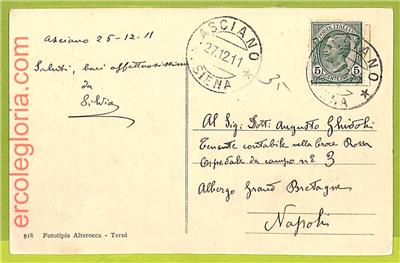 Asciano 25-12-11
Saluti, baci affettuosissimi
da
Silvia
ASCIANO
27.12.11
SIENA
POSTE ITALIANE
5
5
Al Sig. Dott. Augusto Ghidoli
Tenente contabile nella Croce Rossa
Ospedale da campo n° 3
Albergo Grand Bretagne
Napoli
918 Fototipia Alterocca - Terni
ercolegloria.com